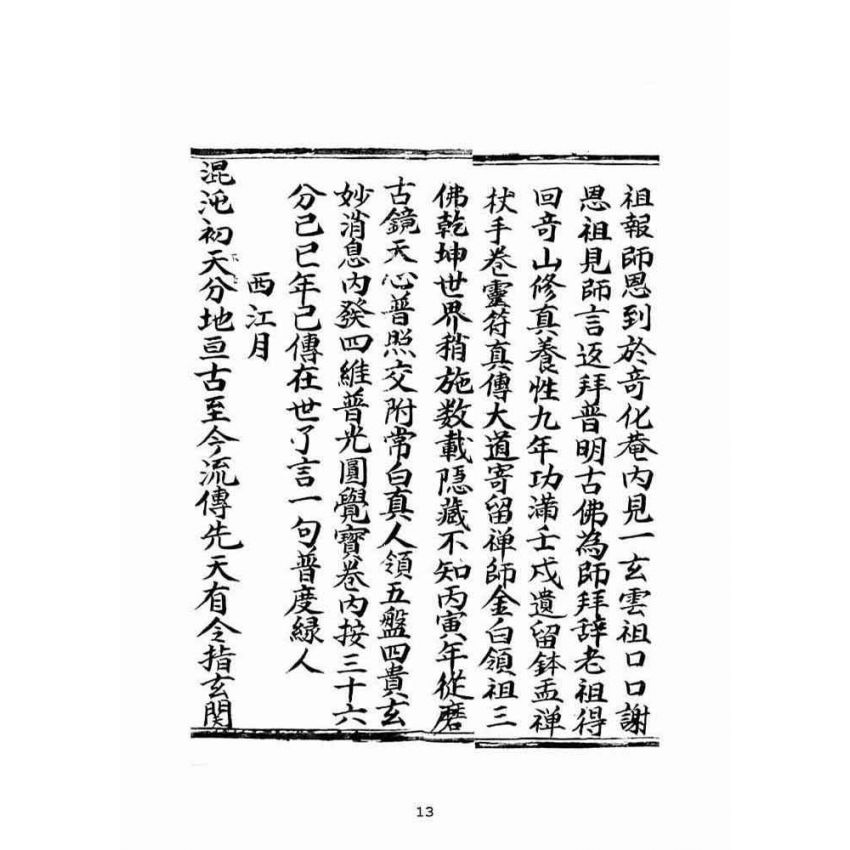 祖報師恩到於竒化菴内見一玄雲祖口口謝
恩祖見師言返拜普明古佛為師拜辞老祖得
回竒山修真養性九年功滿壬戍遺留鉢盂禅
杖手巻靈符真傳大道寄留禅師金白領祖三
佛乾坤世界稍施数載隠藏不知丙寅年從磨
古鏡天心普照交附常白真人領五盤四貴玄
妙消息内發四維普光圓覺寳巻内按三十六
分己巳年己傳在世了言一句普度縁人
西江月
混沌初天分地亘古至今流傳先天有令指玄関
13